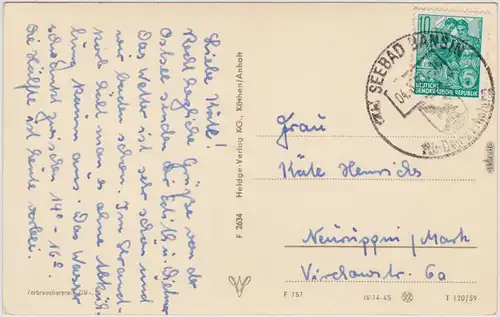 Liebe Käte!
Recht herzliche Grüße von der
Ostsee senden Dir Edith u. Dietmar
Das Wetter ist sehr schön und
wir baden schon. Im Strand-
korb hält man es ohne Abküh-
lung kaum aus. Das Wasser
schwankt zwischen 14° - 16°.
Die Hälfte ist heute vorbei.
Verbraucherpreis
F 2634 Heldge-Verlag KG., Köthen/Anhalt
SEEBAD BANSIN
04
10
DEUTSCHE
DEMOKRATISCHE REPUBLIK
Frau
Käte Henrichs
Neuruppin / Mark
Virchowstr. 6a
F 757
IV-14-45
T 120/59